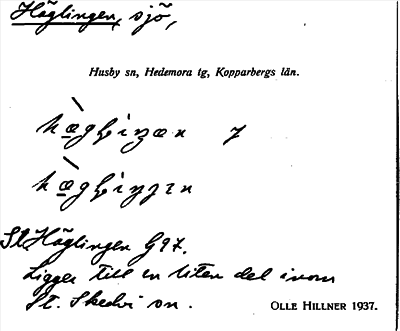 Häglingen, sjö,
Husby sn, Hedemora tg, Kopparbergs län.
St. Häglingen G97.
Ligger till en liten del inom
St. Skedvi sn.
OLLE HILLNER 1937.